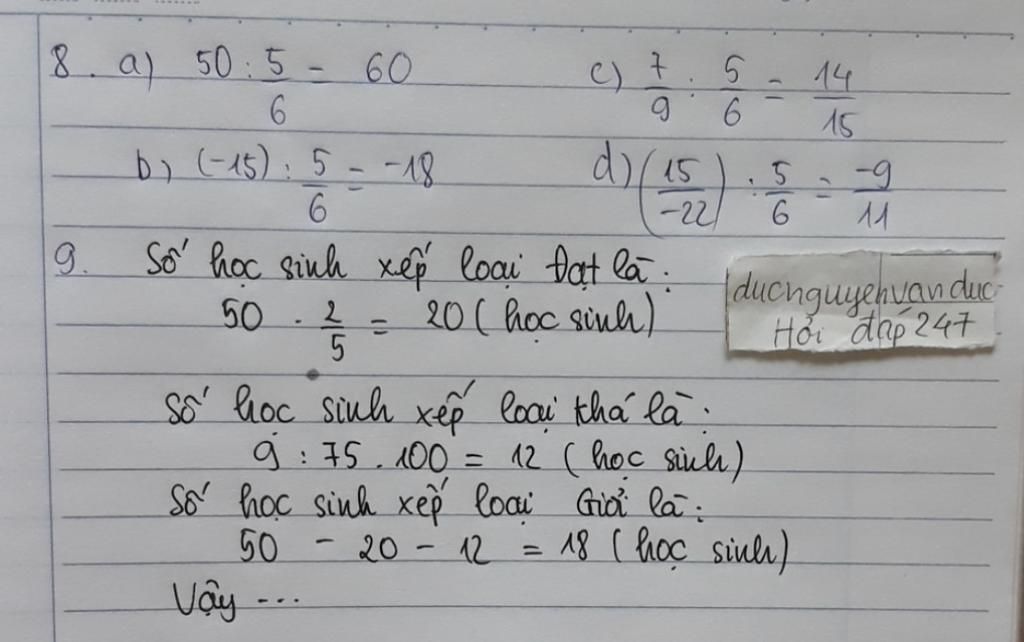 8. a) 50 : 5/6 = 60
c) 7/9 : 5/6 = 14/15
b) (-15) : 5/6 = -18
d) (15/-22) : 5/6 = -9/11
9. Số học sinh xếp loại Đạt là:
50 . 2/5 = 20 (học sinh)
ducnguyenvanduc
Hỏi đáp 247
Số học sinh xếp loại khá là:
9 : 75 . 100 = 12 (học sinh)
Số học sinh xếp loại Giỏi là:
50 - 20 - 12 = 18 (học sinh)
Vậy ...